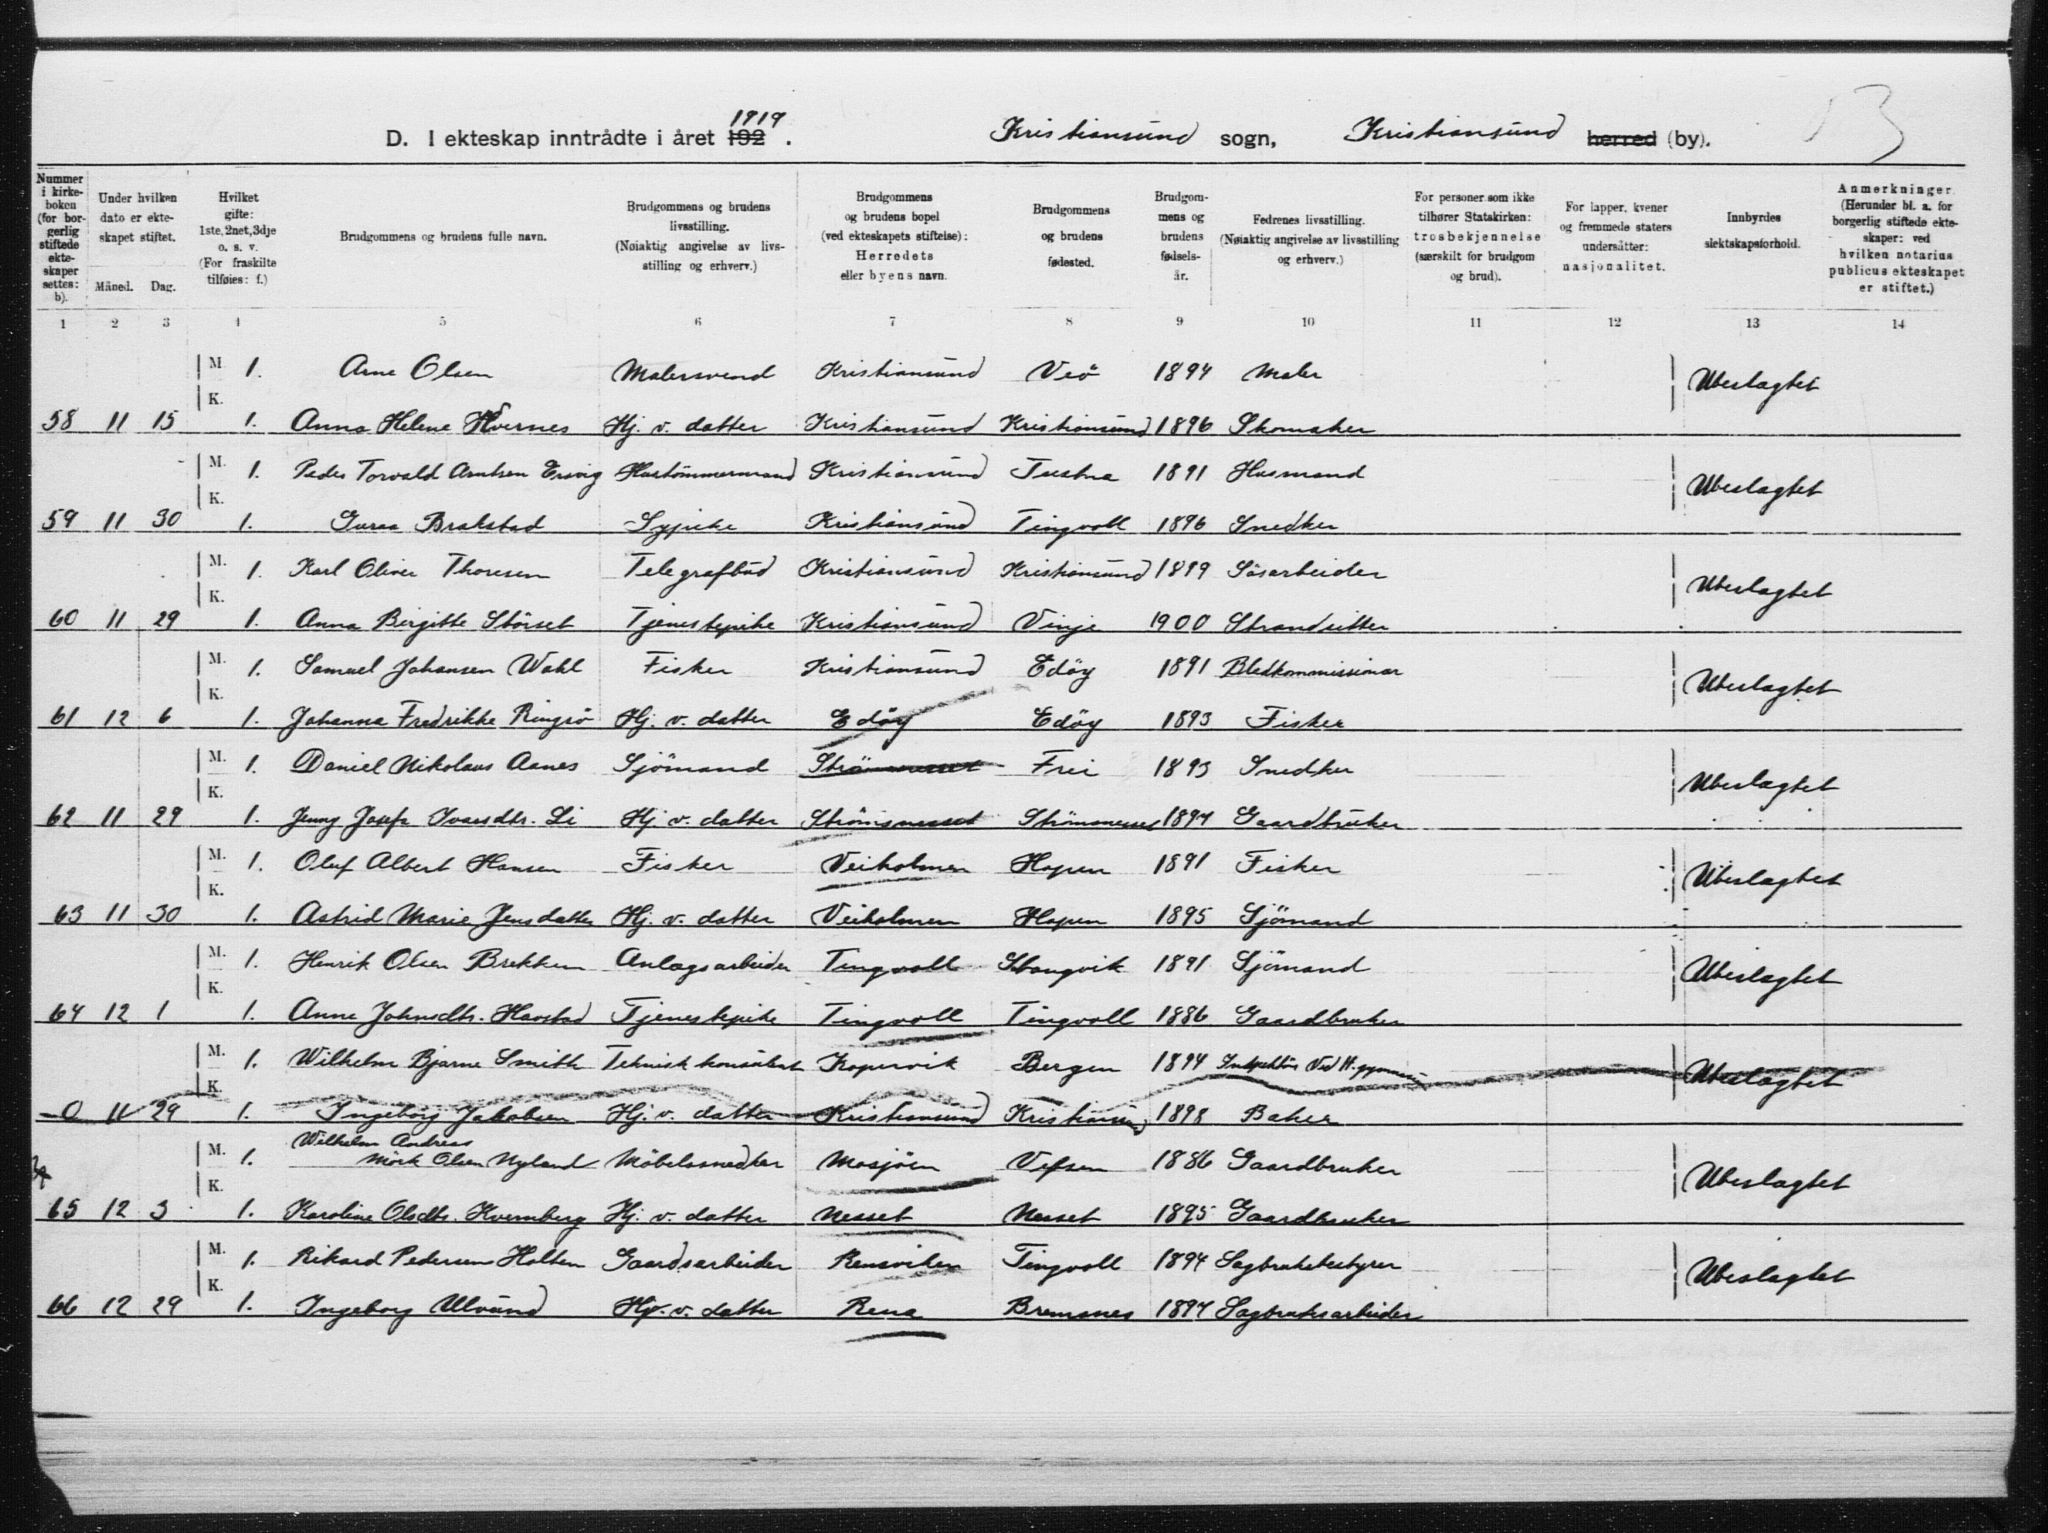 13
1919
D. I ekteskap inntrådte i året 192 . Kristiansund sogn, Kristiansund herred (by).
Nummer i kirke-boken (for bor-gerlig stiftede ekte-skaper settes: b). Under hvilken dato er ekte-skapet stiftet. Måned. Dag. Hvilket gifte: 1ste, 2net, 3dje o. s. v. (For fraskilte tilføies: f.) Brudgommens og brudens fulle navn. Brudgommens og brudens livsstilling. (Nøiaktig angivelse av livs-stilling og erhverv.) Brudgommens og brudens bopel (ved ekteskapets stiftelse): Herredets eller byens navn. Brudgommens og brudens fødested. Brudgom-mens og brudens fødsels-år. Fedrenes livsstilling. (Nøiaktig angivelse av livsstilling og erhverv.) For personer som ikke tilhører Statskirken: trosbekjennelse (særskilt for brudgom og brud). For lapper, kvener og fremmede staters undersåtter: nasjonalitet. Innbyrdes slektskapsforhold. Anmerkninger. (Herunder bl. a. for borgerlig stiftede ekte-skaper: ved hvilken notarius publicus ekteskapet er stiftet.)
1 2 3 4 5 6 7 8 9 10 11 12 13 14
M. 1. Arne Olsen Malersvend Kristiansund Veö 1894 Maler Ubeslagtet
K.
58 11 15 1. Anna Helene Hvernes Hj. v. datter Kristiansund Kristiansund 1896 Skomaker
M. 1. Peder Torvald Arntsen Ervig Hustömmermand Kristiansund Tustna 1891 Husmand Ubeslagtet
K.
59 11 30 1. Guraa Brakstad Sypike Kristiansund Tingvoll 1896 Snedker
M. 1. Karl Oliver Thoresen Telegrafbud Kristiansund Kristiansund 1899 Sösarbeider Ubeslagtet
K.
60 11 29 1. Anna Birgitte Störset Tjenestepike Kristiansund Vinje 1900 Strandsitter
M. 1. Samuel Johansen Wahl Fisker Kristiansund Edöy 1891 Bledkommissionær Ubeslagtet
K.
61 12 6 1. Johanna Fredrikke Ringsö Hj. v. datter Edöy Edöy 1893 Fisker
M. 1. Daniel Nikolaus Aanes Sjömand Strömsneset Frei 1893 Snedker Ubeslagtet
K.
62 11 29 1. Jenny Josefa Ivarsdtr. Li Hj. v. datter Strömsneset Strömsneset 1894 Gaardbruker
M. 1. Oluf Albert Hansen Fisker Veiholmen Hopen 1891 Fisker Ubeslagtet
K.
63 11 30 1. Astrid Marie Jensdatter Hj. v. datter Veiholmen Hopen 1895 Sjömand
M. 1. Henrik Olsen Brekken Anlægsarbeider Tingvoll Stangvik 1891 Sjömand Ubeslagtet
K.
64 12 1 1. Anne Johnsdtr. Havstad Tjenestepike Tingvoll Tingvoll 1886 Gaardbruker
M. 1. Wilhelm Bjarne Smith Teknisk konsulent Kopervik Bergen 1894 Inspektör ved Ubeslagtet
K.
0 11 29 1. Ingeborg Jakobsen Hj. v. datter Kristiansund Kristiansund 1898 Baker
Wilhelm Andreas
M. 1. Mörk Olsen Nyland Möbelsnedker Mosjöen Vefsen 1886 Gaardbruker Ubeslagtet
K.
65 12 3 1. Karoline Olsdtr. Kvernberg Hj. v. datter Nesset Nesset 1895 Gaardbruker
M. 1. Rikard Pedersen Holten Gaardsarbeider Rensviken Tingvoll 1894 Sagbruksbestyrer Ubeslagtet
K.
66 12 29 1. Ingeborg Ulvund Hj. v. datter Rena Bremsnes 1894 Sagbruksarbeider